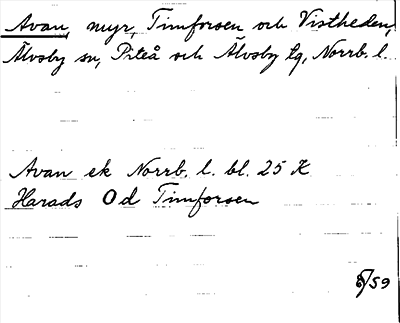 Avan, myr, Timforsen och Vistheden,
Älvsby sn, Piteå och Älvsby tg, Norrb. l.
Avan ek Norrb. l. bl. 25 K
Harads Od Timforsen
/59